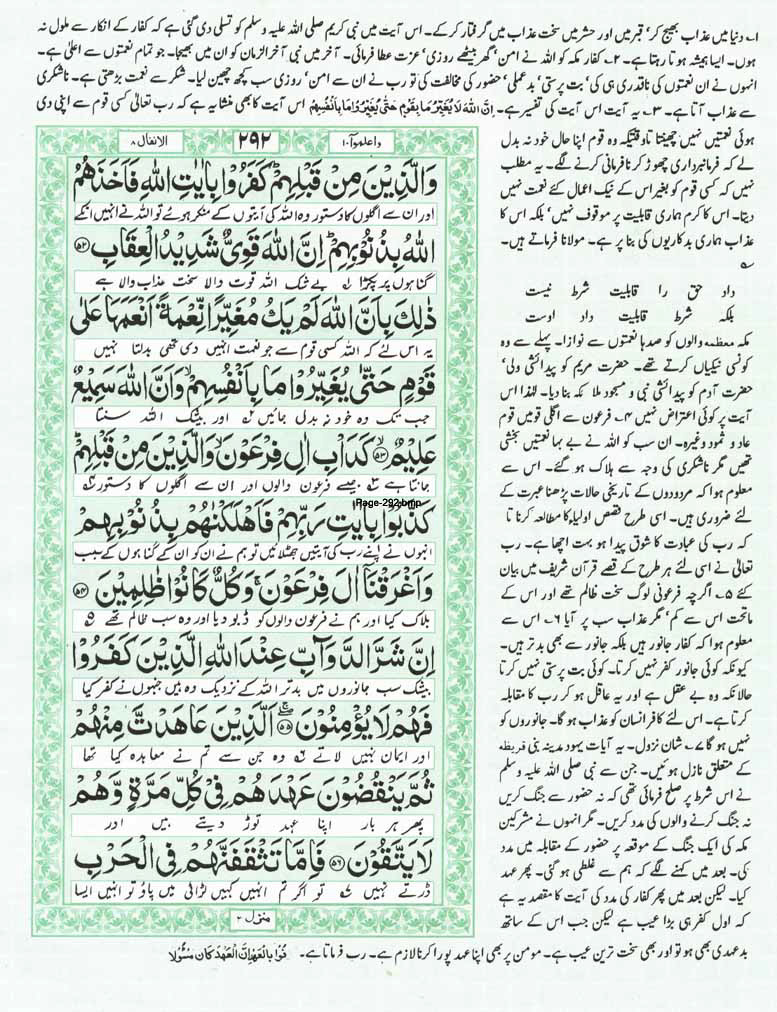 ۱؎ دنیا میں عذاب بھیج کر' قبر میں اور حشر میں سخت عذاب میں گرفتار کرکے۔ اس آیت میں نبی کریم صلی اللہ علیہ وسلم کو تسلی دی گئی ہے کہ کفار کے انکار سے ملول نہ
ہوں۔ ایسا ہمیشہ ہوتا رہتا ہے۔ ۲؎ کفار مکہ کو اللہ نے امن' گھر بیٹھے روزی' عزت عطا فرمائی۔ آخر میں نبی آخر الزمان کو ان میں بھیجا۔ جو تمام نعمتوں سے اعلیٰ ہے۔
انہوں نے ان نعمتوں کی ناقدری ہی کی' بت پرستی' بد عملی' حضور کی مخالفت کی تو رب نے ان سے امن' روزی سب کچھ چھین لیا۔ شکر سے نعمت بڑھتی ہے۔ ناشکری
سے عذاب آتا ہے۔ ۳؎ یہ آیت اس آیت کی تفسیر ہے۔ اِنَّ اللہَ لَا یُغَیِّرُ مَا بِقَوْمٍ حَتّٰی یُغَیِّرُوْا مَا بِاَنْفُسِهِمْ اس آیت کا بھی منشا یہ ہے کہ رب تعالیٰ کسی قوم سے اپنی دی
ہوئی نعمتیں نہیں چھینتا تاوقتیکہ وہ قوم اپنا حال خود نہ بدل
لے کہ فرمانبرداری چھوڑ کر نافرمانی کرنے لگے۔ یہ مطلب
نہیں کہ کسی قوم کو بغیر اس کے نیک اعمال کئے نعمت نہیں
دیتا۔ اس کا کرم ہماری قابلیت پر موقوف نہیں' بلکہ اس کا
عذاب ہماری بدکاریوں کی بنا پر ہے۔ مولانا فرماتے ہیں۔
داد حق را قابلیت شرط نیست
بلکہ شرط قابلیت داد اوست
مکہ معظمہ والوں کو صدہا نعمتوں سے نوازا۔ پہلے سے وہ
کونسی نیکیاں کرتے تھے۔ حضرت مریم کو پیدائشی ولی'
حضرت آدم کو پیدائشی نبی و مسجود ملائکہ بنا دیا۔ لہٰذا اس
آیت پر کوئی اعتراض نہیں ۴؎ فرعون سے اگلی قومیں قوم
عاد و ثمود وغیرہ۔ ان سب کو اللہ نے بے بہا نعمتیں بخشی
تھیں مگر ناشکری کی وجہ سے ہلاک ہو گئے۔ اس سے
معلوم ہوا کہ مردودوں کے تاریخی حالات پڑھنا عبرت کے
لئے ضروری ہیں۔ اسی طرح قصص اولیاء کا مطالعہ کرنا تا
کہ رب کی عبادت کا شوق پیدا ہو بہت اچھا ہے۔ رب
تعالیٰ نے اسی لئے ہر طرح کے قصے قرآن شریف میں بیان
کئے ۵؎ اگرچہ فرعونی لوگ سخت ظالم تھے اور اس کے
ماتحت اس سے کم' مگر عذاب سب پر آیا ۶؎ اس سے
معلوم ہوا کہ کفار جانور ہیں بلکہ جانور سے بھی بدتر ہیں۔
کیونکہ کوئی جانور کفر نہیں کرتا۔ کوئی بت پرستی نہیں کرتا
حالانکہ وہ بے عقل ہے اور یہ عاقل ہو کر رب کا مقابلہ
کرتا ہے۔ اس لئے کافر انسان کو عذاب ہوگا۔ جانوروں کو
نہیں ہوگا ۷؎ شان نزول۔ یہ آیات یہود مدینہ بنی قریظہ
کے متعلق نازل ہوئیں۔ جن سے نبی صلی اللہ علیہ وسلم
نے اس شرط پر صلح فرمائی تھی کہ نہ حضور سے جنگ کریں
نہ جنگ کرنے والوں کی مدد کریں۔ مگر انہوں نے مشرکین
مکہ کی ایک جنگ کے موقعہ پر حضور کے مقابلہ میں مدد
کی۔ بعد میں کہنے لگے کہ ہم سے غلطی ہو گئی۔ پھر عہد
کیا۔ لیکن بعد میں پھر کفار کی مدد کی آیت کا مقصد یہ ہے
کہ اول کفر ہی بڑا عیب ہے لیکن جب اس کے ساتھ
بد عہدی بھی ہو تو اور بھی سخت ترین عیب ہے۔ مومن پر بھی اپنا عہد پورا کرنا لازم ہے۔ رب فرماتا ہے۔ بِالْعَهْدِ اِنَّ الْعَهْدَ کَانَ مَسْئُوْلًا
واعلموآ ۱۰ ۲۹۲ الانفال ۸
وَالَّذِیْنَ مِنْ قَبْلِهِمْ کَفَرُوْا بِاٰیٰتِ اللهِ فَاَخَذَهُمُ
اور ان سے اگلوں کا دستور وہ اللہ کی آیتوں کے منکر ہوئے تو اللہ نے انہیں انکے
اللهُ بِذُنُوْبِهِمْ اِنَّ اللهَ قَوِیٌّ شَدِیْدُ الْعِقَابِ ۵۲
گناہوں پر پکڑا ۱؎ بے شک اللہ قوت والا سخت عذاب والا ہے
ذٰلِكَ بِاَنَّ اللهَ لَمْ یَكُ مُغَیِّرًا نِّعْمَةً اَنْعَمَهَا عَلٰی
یہ اس لئے کہ اللہ کسی قوم سے جو نعمت انہیں دی تھی بدلتا نہیں
قَوْمٍ حَتّٰی یُغَیِّرُوْا مَا بِاَنْفُسِهِمْ وَاَنَّ اللهَ سَمِیْعٌ
جب تک وہ خود نہ بدل جائیں ۲؎ اور بیشک اللہ سنتا
عَلِیْمٌ ۵۳ کَدَاْبِ اٰلِ فِرْعَوْنَ وَالَّذِیْنَ مِنْ قَبْلِهِمْ
جانتا ہے ۳؎ جیسے فرعون والوں اور ان سے اگلوں کا دستور ۴؎
Page-292.bmp
کَذَّبُوْا بِاٰیٰتِ رَبِّهِمْ فَاَهْلَکْنٰهُمْ بِذُنُوْبِهِمْ
انہوں نے اپنے رب کی آیتیں جھٹلائیں تو ہم نے ان کو ان کے گناہوں کے سبب
وَاَغْرَقْنَآ اٰلَ فِرْعَوْنَ وَکُلٌّ کَانُوْا ظٰلِمِیْنَ ۵۴
ہلاک کیا اور ہم نے فرعون والوں کو ڈبو دیا اور وہ سب ظالم تھے ۵؎
اِنَّ شَرَّ الدَّوَآبِّ عِنْدَ اللهِ الَّذِیْنَ کَفَرُوْا
بیشک سب جانوروں میں بدتر اللہ کے نزدیک وہ ہیں جنہوں نے کفر کیا
فَهُمْ لَا یُؤْمِنُوْنَ ۵۵ اَلَّذِیْنَ عَاهَدْتَّ مِنْهُمْ
اور ایمان نہیں لاتے ۶؎ وہ جن سے تم نے معاہدہ کیا تھا
ثُمَّ یَنْقُضُوْنَ عَهْدَهُمْ فِیْ کُلِّ مَرَّةٍ وَّهُمْ
پھر ہر بار اپنا عہد توڑ دیتے ہیں اور
لَا یَتَّقُوْنَ ۵۶ فَاِمَّا تَثْقَفَنَّهُمْ فِی الْحَرْبِ
ڈرتے نہیں ۷؎ تو اگر تم انہیں کہیں لڑائی میں پاؤ تو انہیں ایسا
منزل ۲